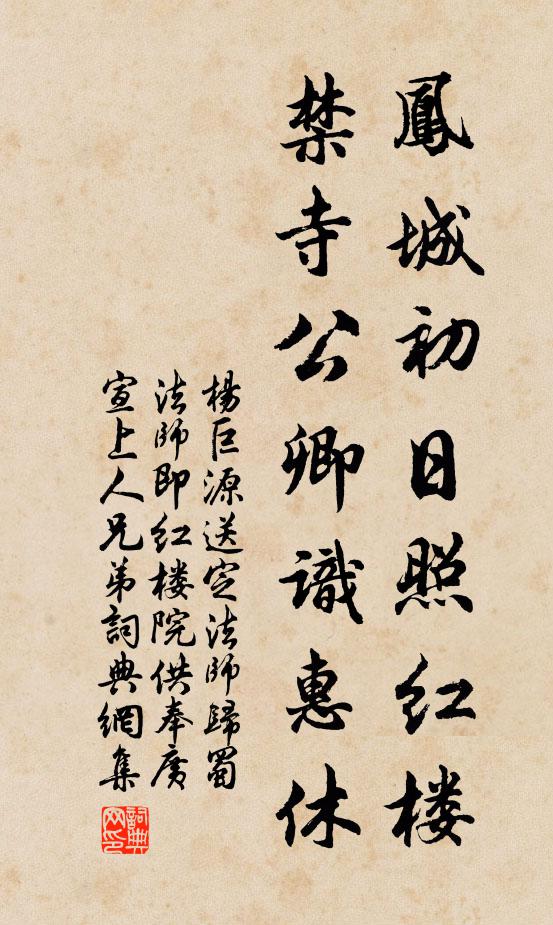 鳳城初日照红楼
禁寺公卿識惠休
楊巨源送定法師歸蜀
法師即红楼院供奉廣
宣上人兄弟詞典網集
詞典
网印